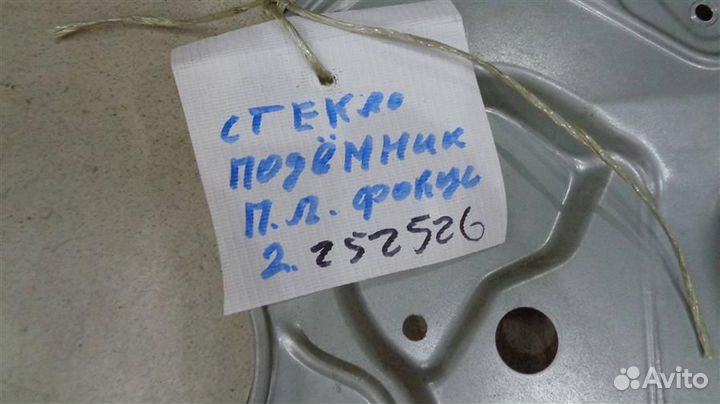 стекло
подёмник
п.л. фокус
2. 252526
Avito